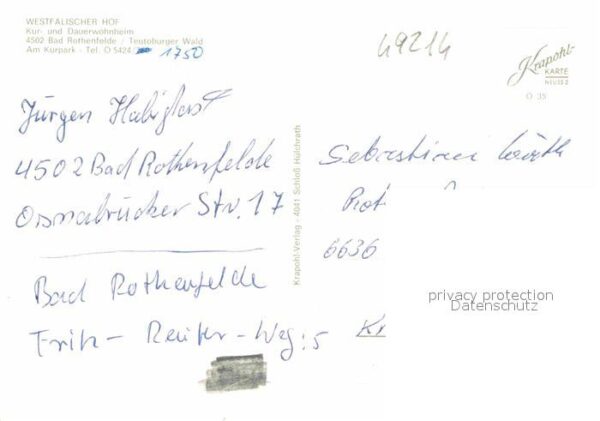 WESTFÄLISCHER HOF
Kur- und Dauerwohnheim
4502 Bad Rothenfelde / Teutoburger Wald
Am Kurpark - Tel. 0 5424/ 1750
49214
Krapohl-
KARTE
O 35
Jürgen
4502 Bad Rothenfelde
Osnabrücker Str. 17
Bad Rothenfelde
Fritz-Reuter-Weg:5
Krapohl-Verlag - 4041 Schloß Hülchrath
Sebastian
6636
privacy protection
Datenschutz